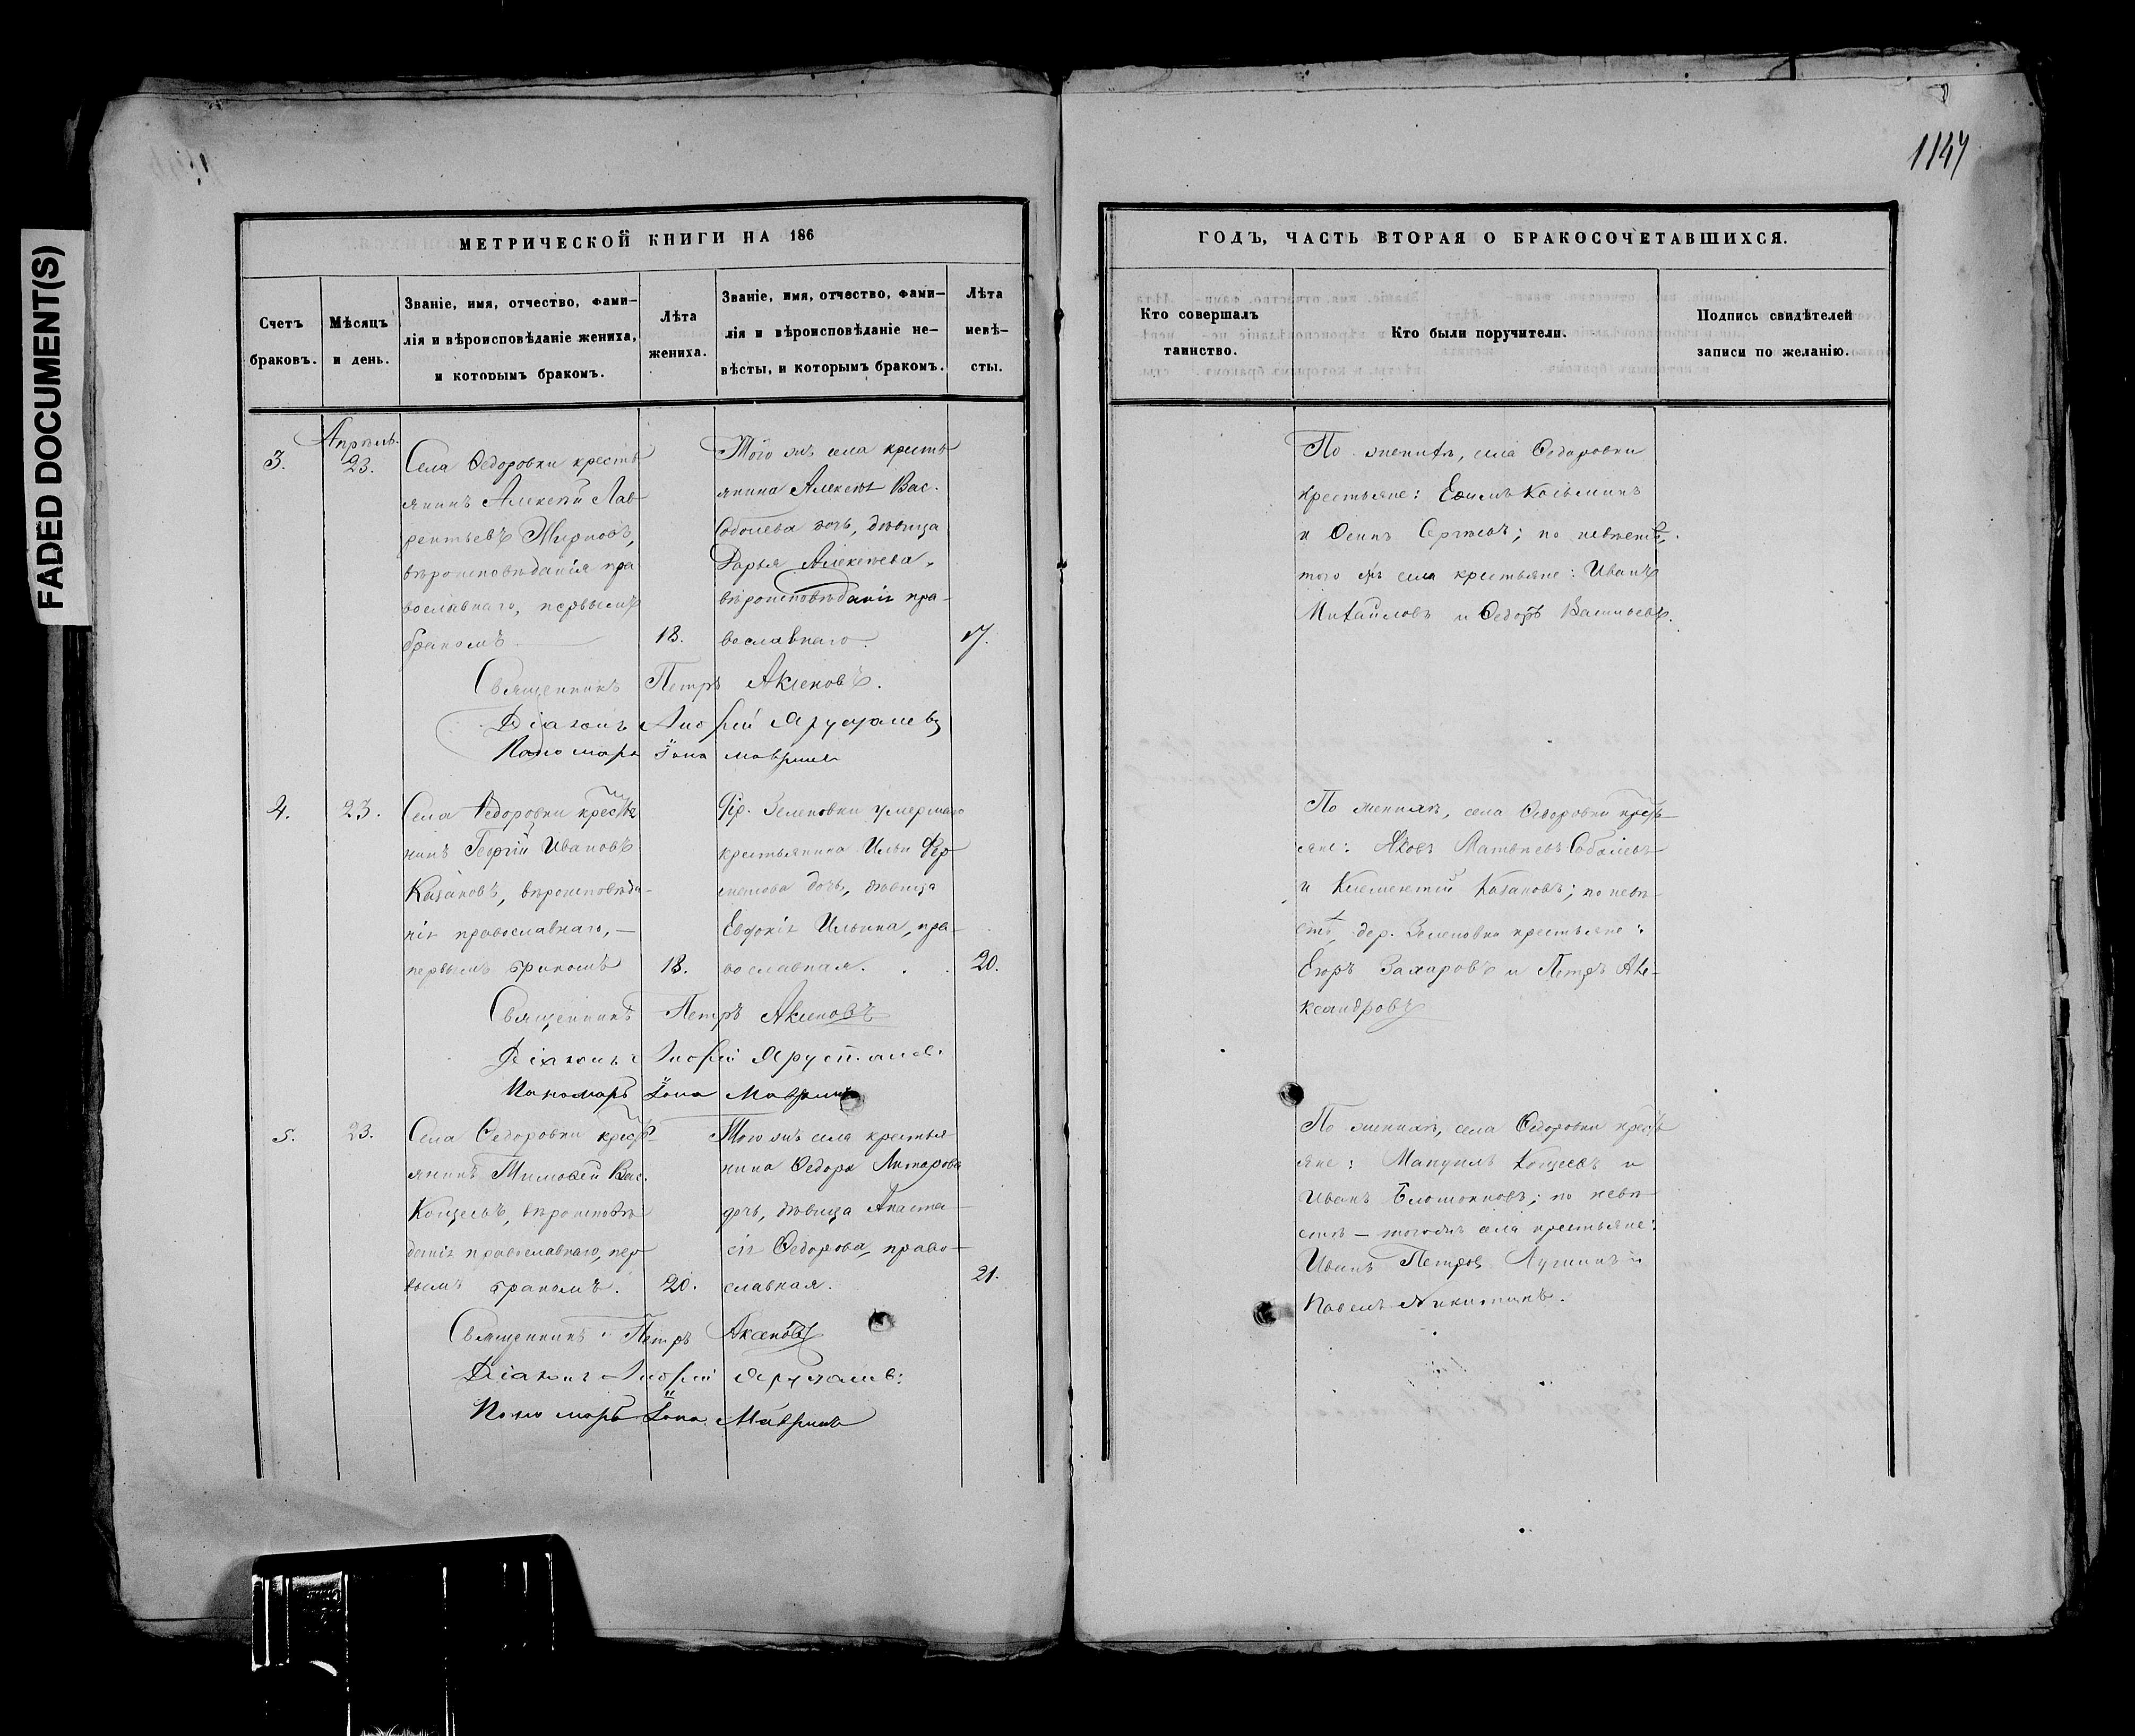 FADED DOCUMENT(S)
1147
МЕТРИЧЕСКОЙ КНИГИ НА 186
Счетъ браковъ.
Мѣсяцъ и день.
Званіе, имя, отчество, фами-
лія и вѣроисповѣданіе жениха,
и которымъ бракомъ.
Лѣта жениха.
Званіе, имя, отчество, фами-
лія и вѣроисповѣданіе не-
вѣсты, и которымъ бракомъ.
Лѣта невѣ-
сты.
3.
Апрѣль
23.
Села Ѳедоровки кресть
янинъ Алексѣй Лав
рентьевъ Жирновъ,
вѣроисповѣданія пра
вославнаго, первымъ
бракомъ
18.
Того жъ села кресть
янина Алексѣя Вас.
Соболева дочь, дѣвица
Дарья Алексѣева,
вѣроисповѣданія пра-
вославнаго.
17.
Священникъ Петръ Аксеновъ.
Діаконъ
Пономарь Іона Мавринъ
4.
23.
Села Ѳедоровки крестья
нинъ Георгій Ивановъ
Казаковъ, вѣроисповѣда-
нія православнаго,
первымъ бракомъ
18.
Дер. Зеленовки умершаго
крестьянина Ильи
дочь, дѣвица
Евдокія Ильина, пра-
вославная.
20.
Священникъ Петръ Аксеновъ
Діаконъ
Пономарь Іона Мавринъ
5.
23.
Села Ѳедоровки кресть-
янинъ Тимоѳей Вас.
Кощеевъ, вѣроисповѣ
данія православнаго, пер
вымъ бракомъ.
20.
Того жъ села крестья
нина Ѳедора
дочь, дѣвица Анаста-
сія Ѳедорова, право-
славная.
21.
Священникъ Петръ Аксеновъ
Діаконъ
Пономарь Іона Мавринъ
ГОДЪ, ЧАСТЬ ВТОРАЯ О БРАКОСОЧЕТАВШИХСЯ.
Кто совершалъ
таинство.
Кто были поручители.
Подпись свидѣтелей
записи по желанію.
По женихѣ, села Ѳедоровки
крестьяне: Евѳимъ Козьминъ
и Осипъ Сергѣевъ; по невѣстѣ,
того жъ села крестьяне: Иванъ
Михайловъ и Ѳедоръ Васильевъ.
По женихѣ, села Ѳедоровки кресть-
яне: Яковъ Матвѣевъ Соболевъ
и Климентій Казаковъ; по невѣ-
стѣ, дер. Зеленовки крестьяне:
Егоръ Захаровъ и Петръ Але-
ксандровъ
По женихѣ, села Ѳедоровки кресть
яне: Мануилъ Кощеевъ и
Иванъ по невѣ
стѣ — того жъ села крестьяне:
Иванъ Петровъ и
Павелъ Никитинъ.